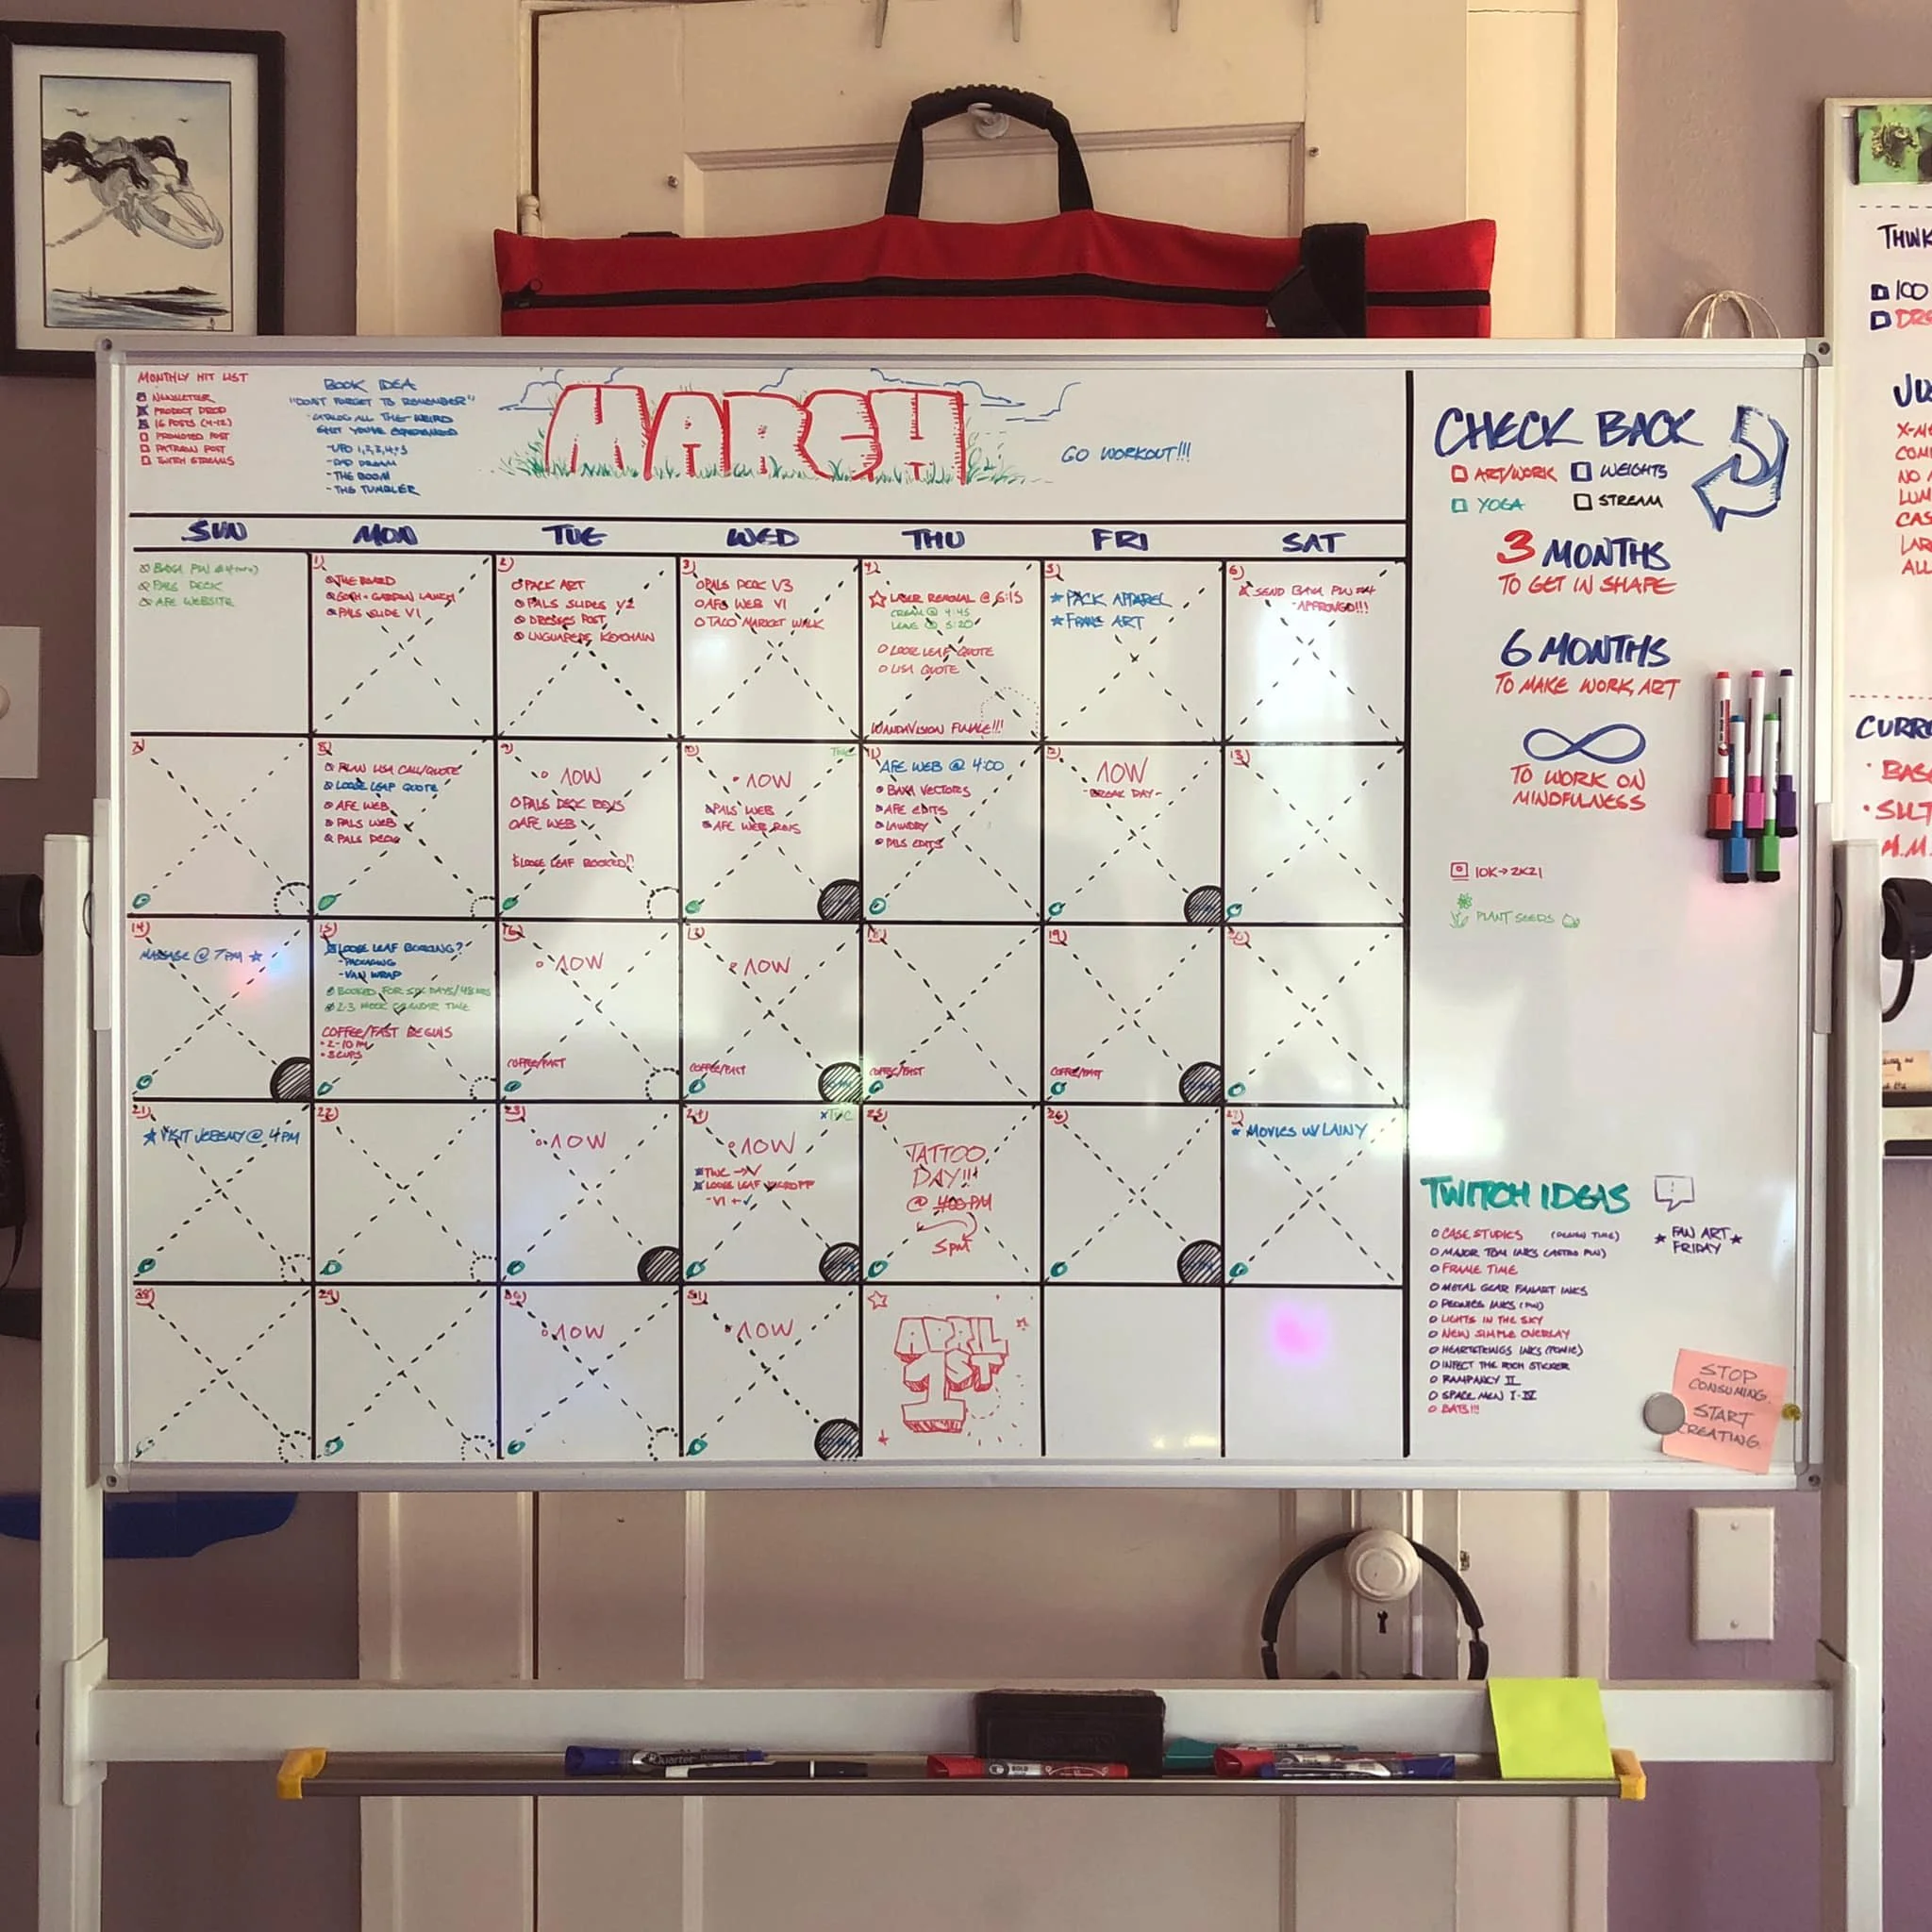 MONTHLY HIT LIST
NEWSLETTER
PRODUCT DROP
16 POSTS (4-12)
PROMOTED POST
PATREON POST
TWITCH STREAMS
BOOK IDEA
"DON'T FORGET TO REMEMBER"
-CATALOG ALL THE WEIRD
SHIT YOU'VE EXPERIENCED
-UFO 1,2,3,4+5
-DAD DREAM
-THE BOOM
-THE TUMBLER
MARCH
GO WORKOUT!!!
SUN MON TUE WED THU FRI SAT
PALS DECK
AFE WEBSITE
1)
THE BOARD
GOTH + GARDEN LAUNCH
PALS SLIDE V1
2)
PACK ART
PALS SLIDES V2
DRESSES POST
KEYCHAIN
3)
PALS DECK V3
AFE WEB V1
TACO MARKET WALK
4)
LASER REMOVAL @ 6:15
CREAM @ 4:45
LEAVE @ 5:20
LOOSE LEAF QUOTE
LISA QUOTE
WANDAVISION FINALE!!!
5)
PACK APPAREL
FRAME ART
6)
SEND BAXA PW
-APPROVED!!!
7)
8)
PLAN LISA CALL/QUOTE
LOOSE LEAF QUOTE
AFE WEB
PALS WEB
PALS DECK
9)
NOW
PALS DECK REVS
AFE WEB
LOOSE LEAF BOOKED!!
10)
NOW
PALS WEB
AFE WEB REVS
11)
AFE WEB @ 4:00
BAXA VECTORS
AFE EDITS
LAUNDRY
PALS EDITS
12)
NOW
-BREAK DAY-
13)
14)
MASSAGE @ 7PM
15)
LOOSE LEAF BOOKING?
-PACKAGING
-VAN WRAP
BOOKED FOR SIX DAYS/48 HRS
2-3 WEEK CALENDAR TIME
COFFEE/FAST BEGINS
2-10 PM
3 CUPS
16)
NOW
COFFEE/FAST
17)
NOW
COFFEE/FAST
18)
COFFEE/FAST
19)
COFFEE/FAST
20)
21)
VISIT @ 4 PM
22)
23)
NOW
24)
TWC
NOW
TWC
LOOSE LEAF KICKOFF
-V1
25)
TATTOO
DAY!!!
@ 4:00PM
5PM
26)
27)
MOVIES W/ LAINY
28)
29)
30)
NOW
31)
NOW
APRIL
1ST
CHECK BACK
ART/WORK WEIGHTS
YOGA STREAM
3 MONTHS
TO GET IN SHAPE
6 MONTHS
TO MAKE WORK, ART
TO WORK ON
MINDFULNESS
10K→2K21
PLANT SEEDS
TWITCH IDEAS
CASE STUDIES (DESIGN TIME)
MAJOR TOM INKS (ASTRO PW)
FRAME TIME
METAL GEAR FANART INKS
PEONIES INKS (PW)
LIGHTS IN THE SKY
NEW SIMPLE OVERLAY
HEARTSTRINGS INKS
INFECT THE RICH STICKER
RAMPANCY II
SPACE MEN I-IV
BATS!!!
FAN ART
FRIDAY
STOP
CONSUMING.
START
CREATING.
100
CURR
Quartet